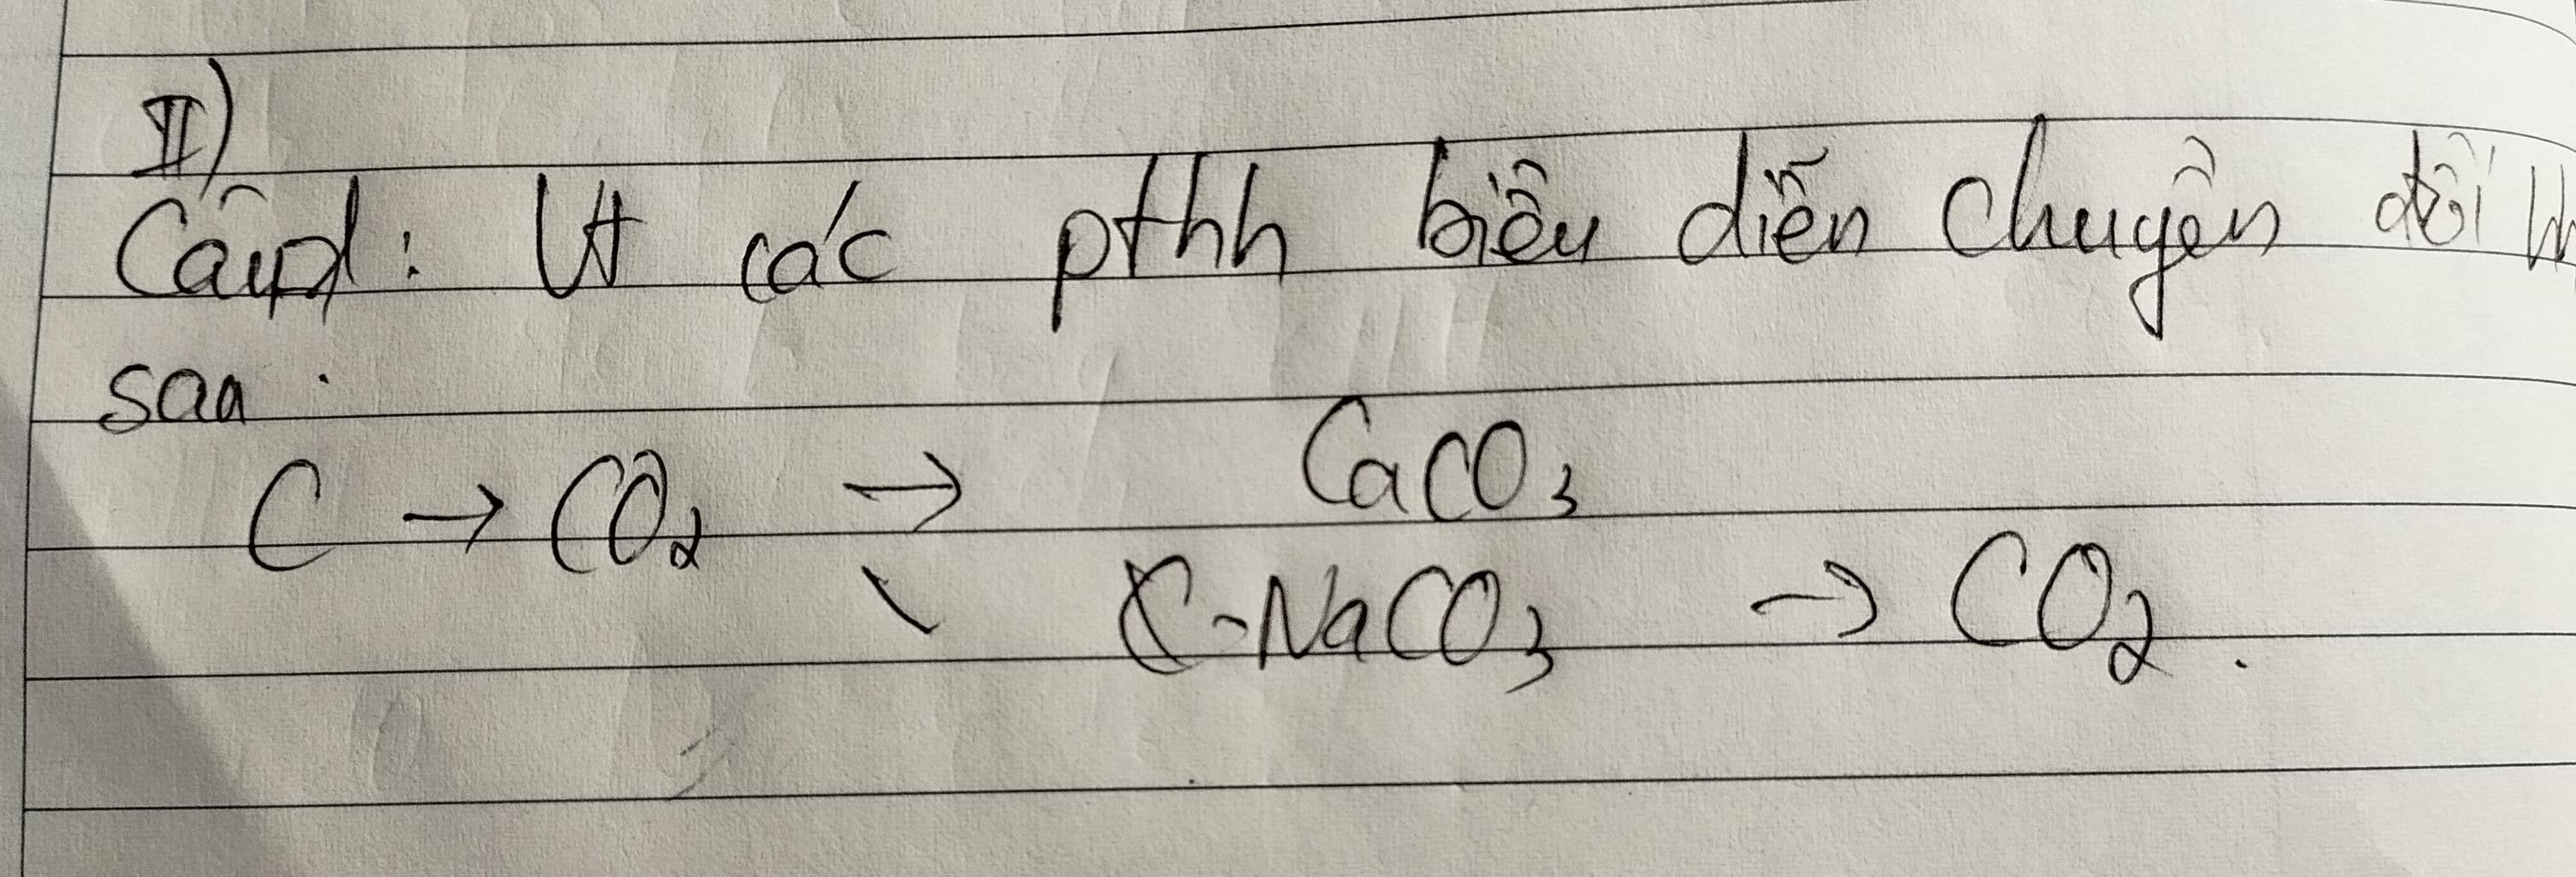 II)
Câu1: Vt các pthh biểu diễn chuyển đổi
sau:
C → CO₂ → CaCO₃
↘ NaCO₃ → CO₂.